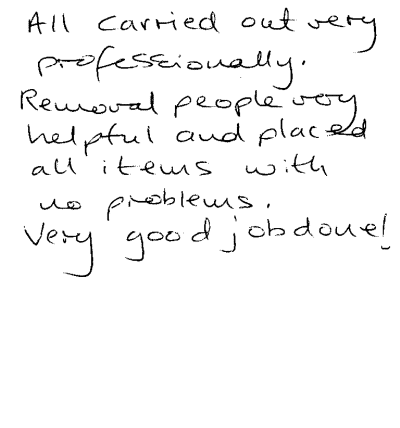 All carried out very
professionally.
Removal people very
helpful and placed
all items with
no problems.
Very good job done!